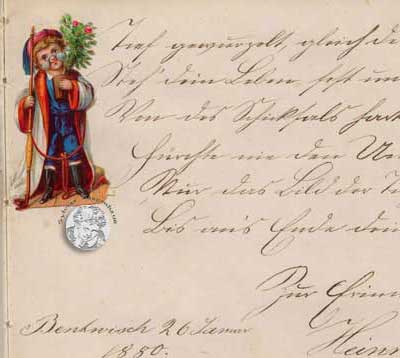 Tief gewurzelt, gleich de
Steh' dein Leben, fest un
Von des Schicksals hart
Fürchte nie den Un
Nur das Bild der T
Bis an's Ende dein
Zur Erinn
Bentwisch 26 Januar
1880. Heinr